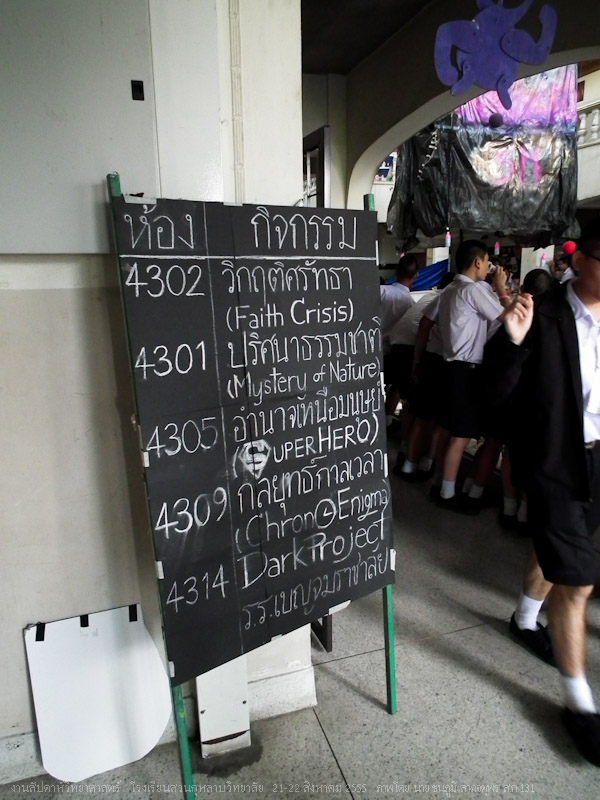 ห้อง กิจกรรม
4302 วิกฤติศรัทธา
(Faith Crisis)
4301 ปริศนาธรรมชาติ
(Mystery of Nature)
4305 อำนาจเหนือมนุษย์
(SUPERHERO)
4309 กลยุทธ์กาลเวลา
(Chrono Enigma)
4314 Dark Project
ร.ร.เบญจมราชาลัย
งานสัปดาห์วิทยาศาสตร์ โรงเรียนสวนกุหลาบวิทยาลัย 21-22 สิงหาคม 2555 ภาพโดย นาย ธนภูมิ